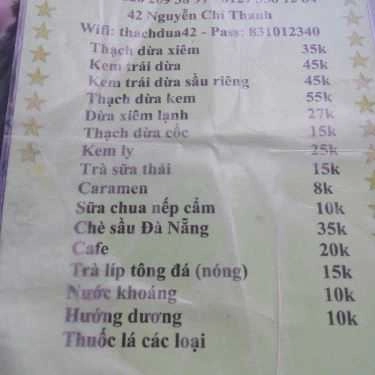 42 Nguyễn Chí Thanh
Wifi: thachdua42 - Pass: 831012340
Thạch dừa xiêm 35k
Kem trái dừa 45k
Kem trái dừa sầu riêng 45k
Thạch dừa kem 55k
Dừa xiêm lạnh 27k
Thạch dừa cốc 15k
Kem ly 25k
Trà sữa thái 15k
Caramen 8k
Sữa chua nếp cẩm 10k
Chè sầu Đà Nẵng 35k
Cafe 20k
Trà líp tông đá (nóng) 15k
Nước khoáng 10k
Hướng dương 10k
Thuốc lá các loại